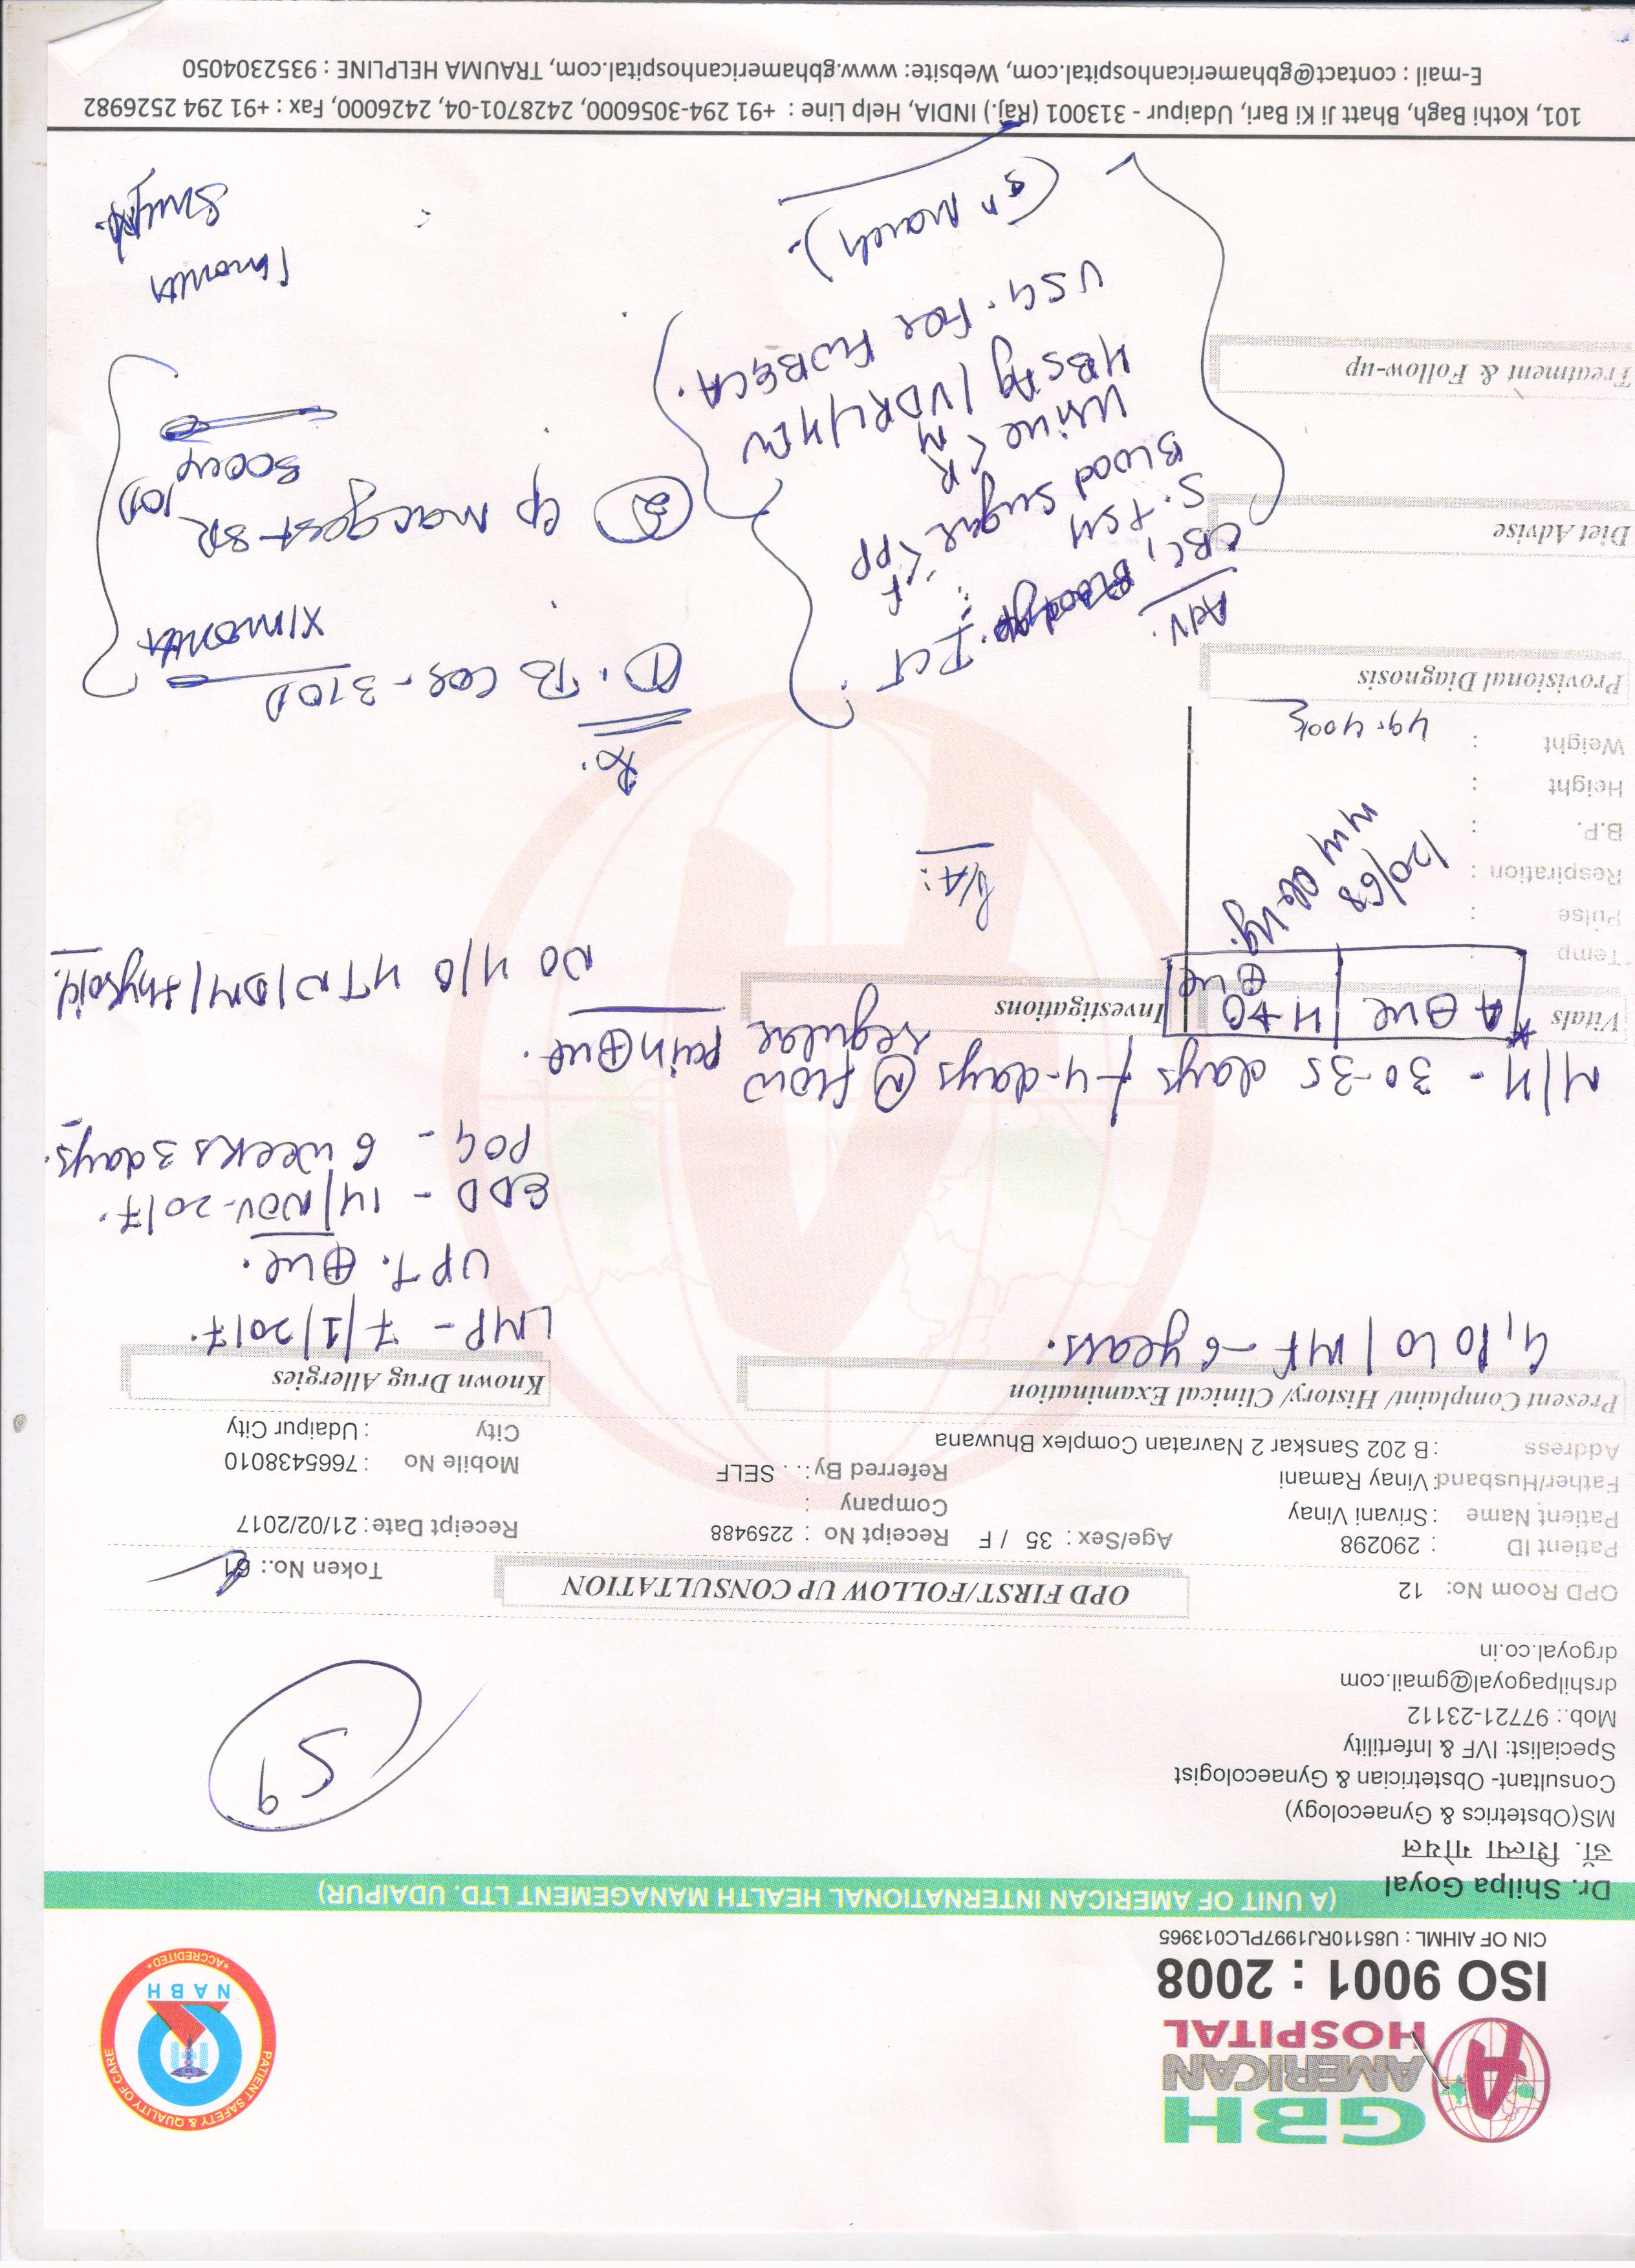 GBH
AMERICAN
HOSPITAL
ISO 9001 : 2008
CIN OF AIHML : U85110RJ1997PLC013965
PATIENT SAFETY & QUALITY OF CARE
NABH
*ACCREDITED*
(A UNIT OF AMERICAN INTERNATIONAL HEALTH MANAGEMENT LTD. UDAIPUR)
Dr. Shilpa Goyal
डॉ. शिल्पा गोयल
MS(Obstetrics & Gynaecology)
Consultant- Obstetrician & Gynaecologist
Specialist: IVF & Infertility
Mob.: 97721-23112
drshilpagoyal@gmail.com
drgoyal.co.in
59
OPD Room No: 12
OPD FIRST/FOLLOW UP CONSULTATION
Token No.: 61
Patient ID : 290298
Age/Sex : 35 / F
Receipt No : 2259488
Receipt Date : 21/02/2017
Patient Name : Srivani Vinay
Company :
Father/Husband : Vinay Ramani
Referred By : . . SELF
Mobile No : 7665438010
Address : B 202 Sanskar 2 Navratan Complex Bhuwana
City : Udaipur City
Present Complaint/ History/ Clinical Examination
Known Drug Allergies
G1P0L0 | MF - 6 years.
LMP - 7/1/2017.
UPT. ⊕ve.
EDD - 14/NOV-2017.
POG - 6 weeks 3 days.
M/H - 30-35 days / 4-days Ⓝ flow regular pain⊕ve.
Vitals
* A ⊕ve | H+O ⊕ve
Investigations
NO H/O HTN/DM/thyroid.
Temp :
Pulse :
Respiration :
B.P. :
Height :
Weight : 49.400kg
120/68
mm of Hg.
P/A:
Rx.
① . Tb 1OD
X1month
② Cp macgest-SR 10D
1month
Provisional Diagnosis
Adv.
CBC, Blood gp. ICT
S. TSH
Blood sugar < F PP
Urine < R M
HBsAg / VDRL / HIV
USG. For FWB & CA.
Diet Advise
Treatment & Follow-up
101, Kothi Bagh, Bhatt Ji Ki Bari, Udaipur - 313001 (Raj.) INDIA, Help Line : +91 294-3056000, 2428701-04, 2426000, Fax : +91 294 2526982
E-mail : contact@gbhamericanhospital.com, Website: www.gbhamericanhospital.com, TRAUMA HELPLINE : 9352304050